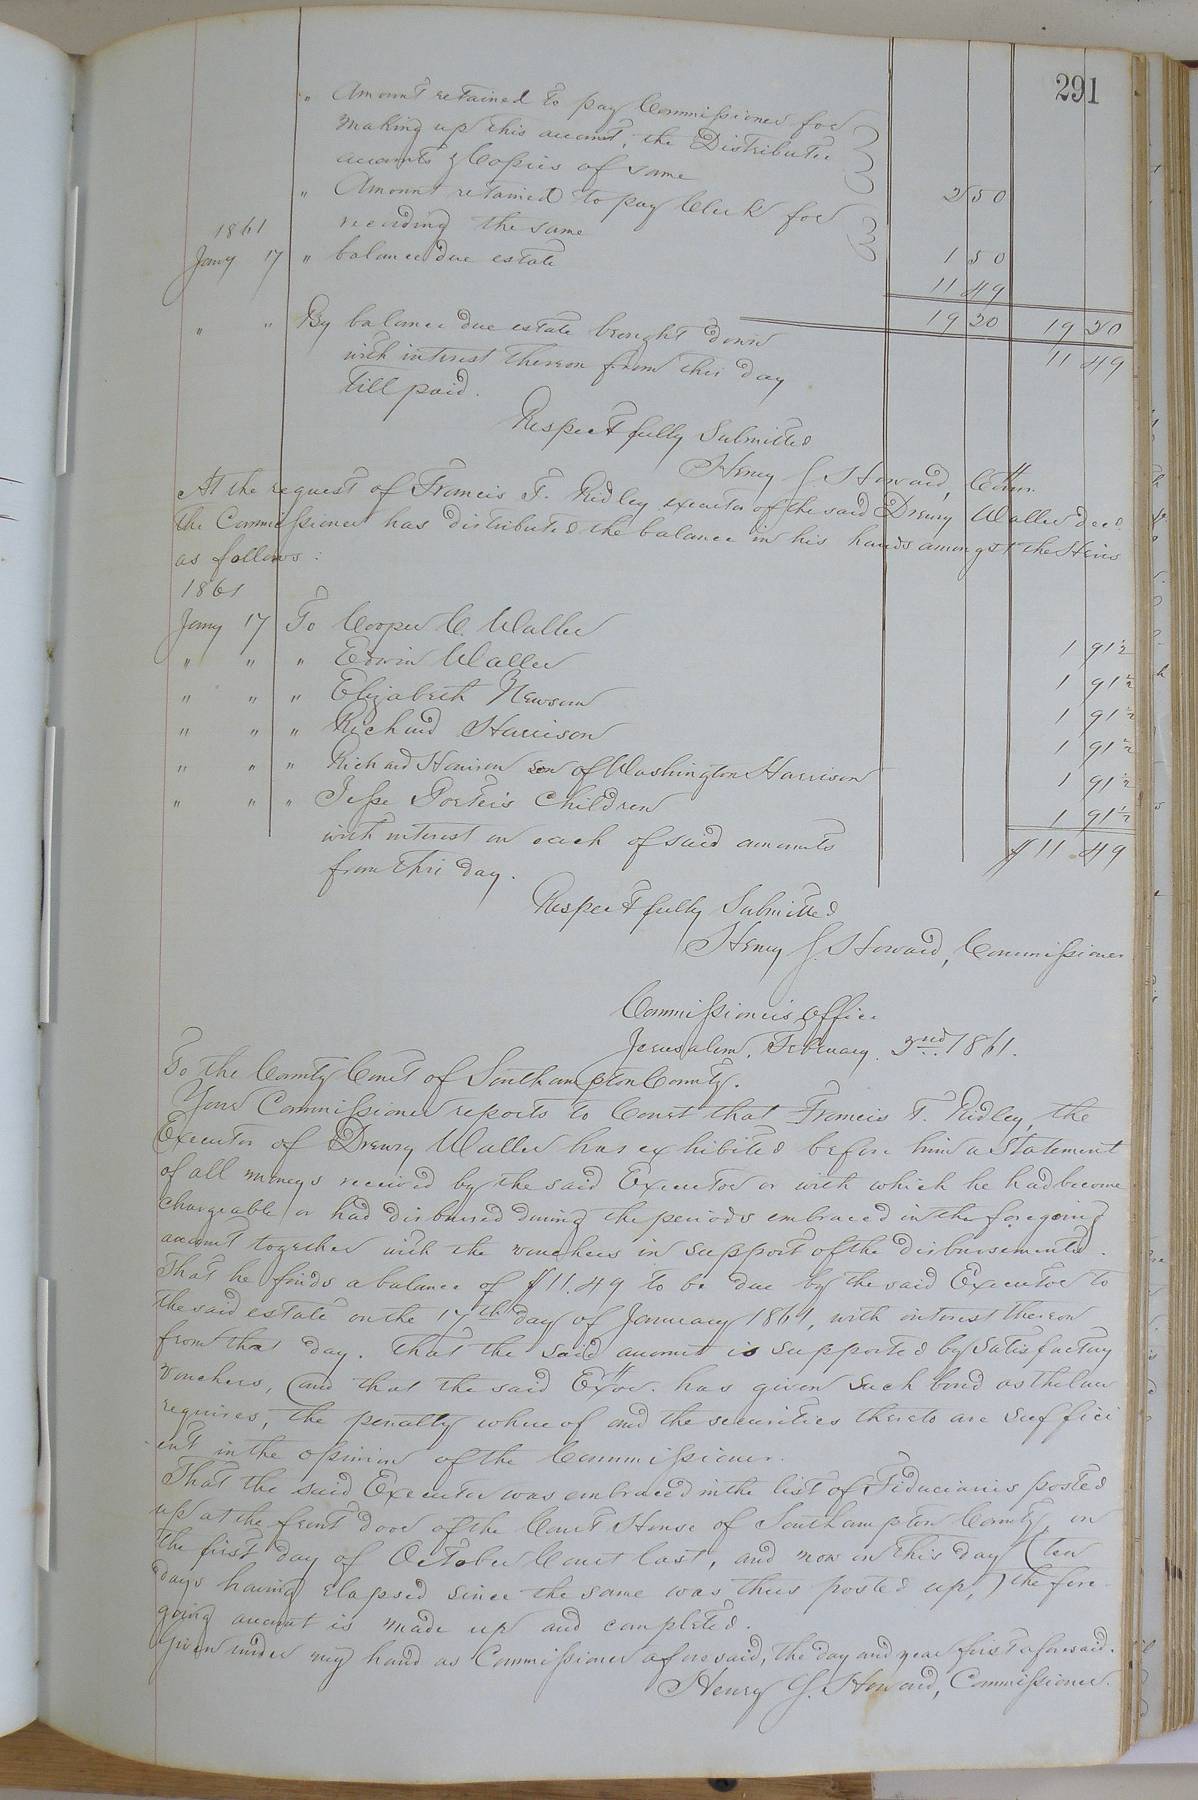 291
" Amount retained to pay Commissioner for
making up this account, the Distributee
accounts & Copies of same 2 50
" Amount retained to pay Clerk for
recording the same 1 50
1861
Jany 17 " balance due estate 11 49
19 20 19 20
" " By balance due estate brought down 11 49
with interest thereon from this day
till paid.
Respectfully Submitted
Henry S. Howard, Comr.
At the request of Francis T. Ridley executor of the said Drewry Waller decd
the Commissioner has distributed the balance in his hands amongst the Heirs
as follows:
1861
Jany 17 To Cooper C. Waller 1 91½
" " " Edwin Waller 1 91½
" " " Elizabeth Newsom 1 91½
" " " Richard Harrison 1 91½
" " " Richard Harrison son of Washington Harrison 1 91½
" " " Jesse Porter's Children 1 91½
with interest on each of said amounts $11.49
from this day.
Respectfully Submitted
Henry S. Howard, Commissioner
Commissioner's office
Jerusalem, February 3rd 1861.
To the County Court of Southampton County.
Your Commissioner reports to Court that Francis T. Ridley, the
Executor of Drewry Waller has exhibited before him a Statement
of all moneys received by the said Executor or with which he had become
chargeable or had disbursed during the periods embraced in the foregoing
account together with the vouchers in support of the disbursements.
That he finds a balance of $11.49 to be due by the said Executor to
the said estate on the 17th day of January 1861, with interest thereon
from that day. That the said account is supported by Satisfactory
vouchers, (and that the said Exor. has given such bond as the law
requires, the penalty whereof and the securities thereto are suffici
ent in the opinion of the Commissioner.
That the said Executor was embraced in the list of Fiduciaries posted
up at the front door of the Court House of Southampton County, on
the first day of October Court last, and now on this day (ten
days having elapsed since the same was thus posted up,) the fore-
going account is made up and completed.
Given under my hand as Commissioner aforesaid, the day and year first aforesaid.
Henry S. Howard, Commissioner.